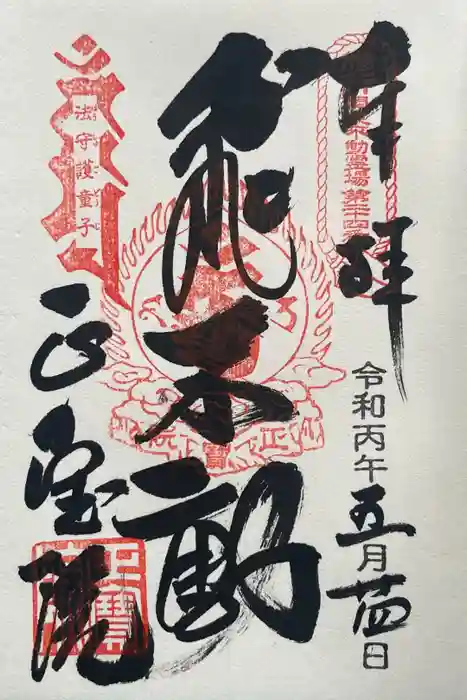 奉拝
不動霊場第二十四
令和丙午五月廿四日
飛不動
法守護童子
正宝院
正寶院